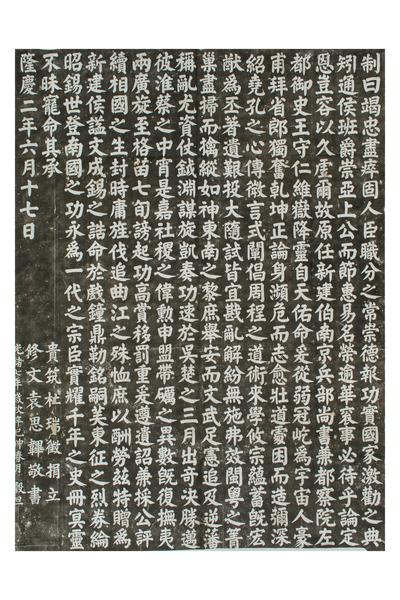 制曰竭忠盡瘁固人臣職分之常崇德報功實國家激勸之典
矧通侯班爵崇亞上公而節惠易名榮逾華袞事必待乎論定
恩豈容以久虛爾故原任新建伯南京兵部尚書兼都察院左
都御史王守仁維嶽降靈自天佑命爰從弱冠屹為宇宙人豪
甫拜省郎獨奮乾坤正論身瀕危而志愈壯道處困而造彌深
紹堯孔之心傳微言式闡倡周程之道術來學攸宗蘊蓄既宏
猷為丕著遺艱投大隨試皆宜戡亂解紛無施弗效閩粵之箐
巢盡掃而擒縱如神東南之黎庶舉安而文武足憲追及逆藩
稱亂尤資仗鉞淵謀旋凱奏功速於吳楚之三月出奇決勝邁
彼淮蔡之中宵是嘉社稷之偉勳申盟帶礪之異數既復撫夷
兩廣旋至格苗七旬謗起功高賞移罰重爰遵遺詔兼採公評
續相國之生封時庸旌伐追曲江之殊恤庶以酬勞茲特贈為
新建侯謚文成錫之誥命於戲鐘鼎勒銘嗣美東征之烈券綸
昭錫世登南國之功永為一代之宗臣實耀千年之史冊冥靈
不昧寵命其承
隆慶二年六月十七日
貴筑杜瑞徵捐立
修文袁思韠敬書
光緒七年歲次辛巳仲春月穀旦